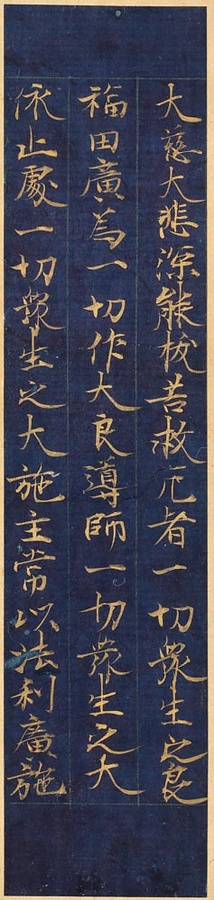 大慈大悲深能拔苦救厄者一切眾生之良
福田廣為一切作大良導師一切眾生之大
依止處一切眾生之大施主常以法利廣施